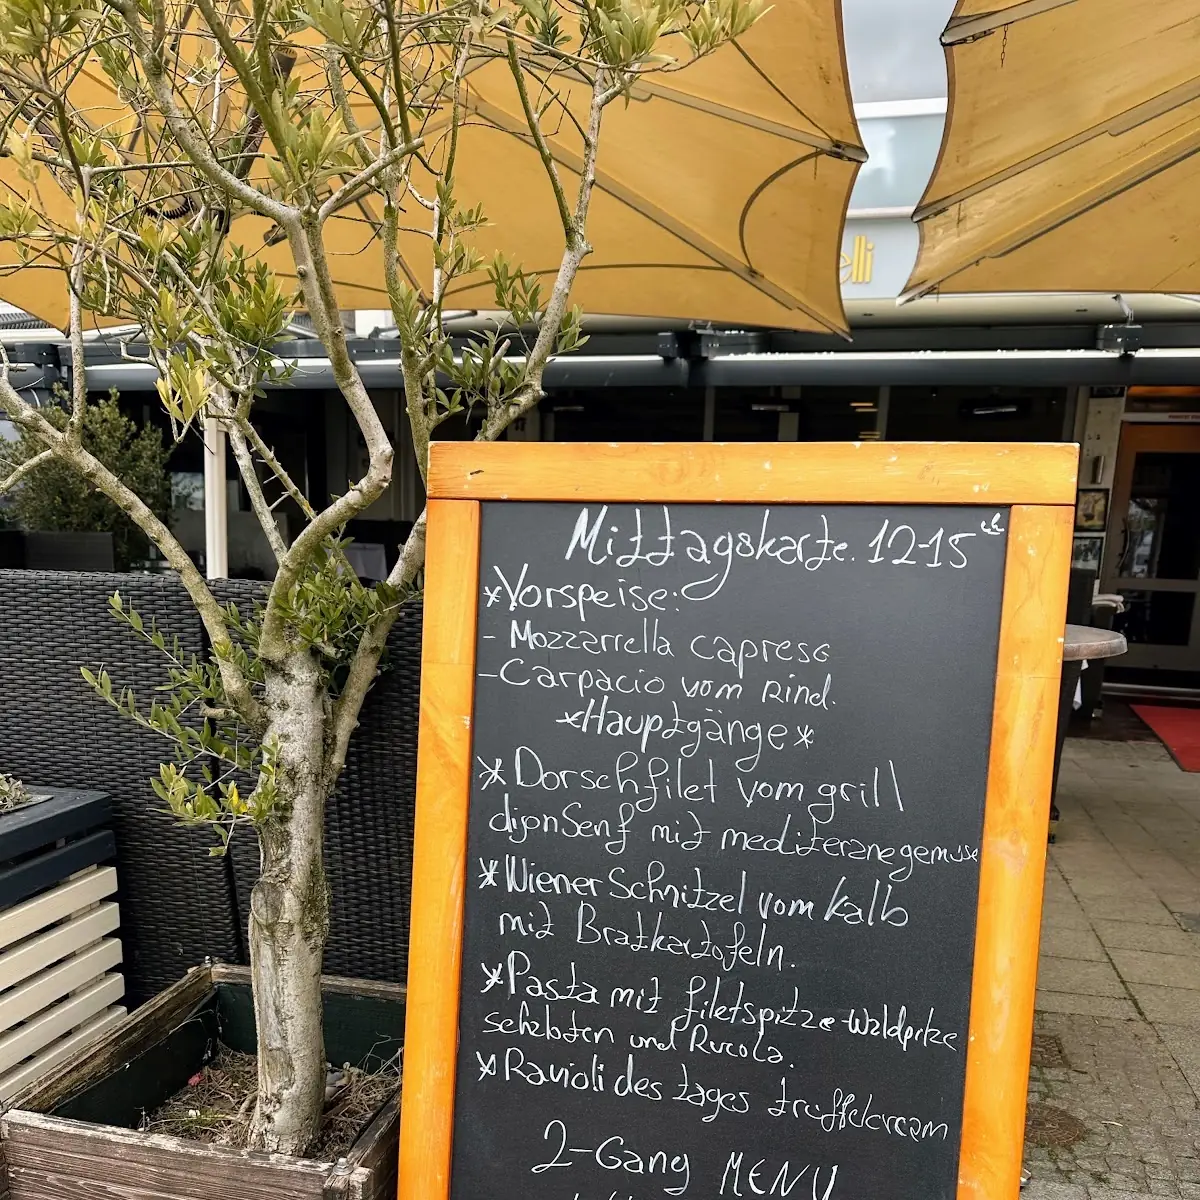 elli
Mittagskarte. 12-15 uh
*Vorspeise:
- Mozzarrella caprese
- Carpacio vom Rind.
*Hauptgänge*
* Dorschfilet vom grill
dijonSenf mit mediteranegemüse
* Wiener Schnitzel vom kalb
mit Bratkartofeln.
* Pasta mit filetspitze-Waldpilze
schaloten und Rucola.
* Ravioli des tages trüffelcream
2-Gang MENU